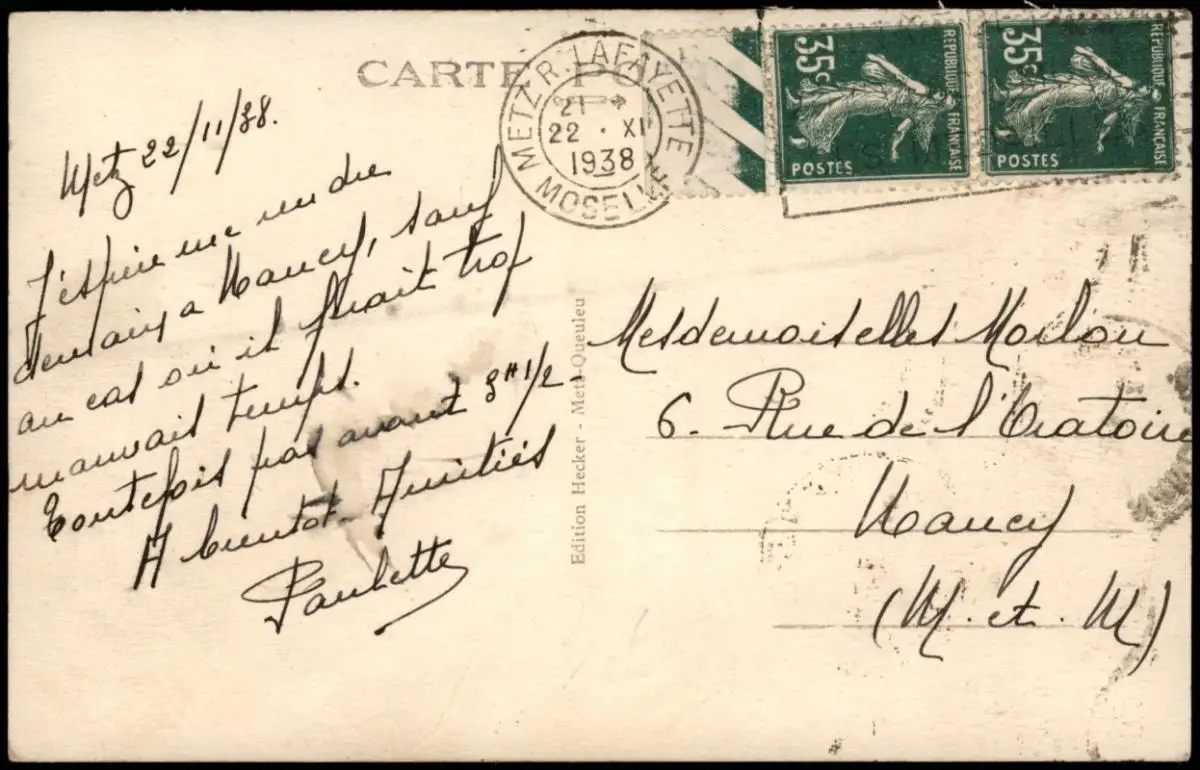 CARTE PO
METZ R. LAFAYETTE
21
22 · XI
1938
MOSELLE
35c
REPUBLIQUE FRANÇAISE
POSTES
35c
REPUBLIQUE FRANÇAISE
POSTES
Metz 22/11/38.
J'espère me rendre
demain a Nancy, sauf
au cas où il ferait trop
mauvais temps.
Toutefois pas avant 3H1/2
A bientôt. Amitiés
Paulette
Edition Hecker - Metz-Queuleu
Mesdemoiselles
6. Rue de l'Oratoire
Nancy
(M. et. M)